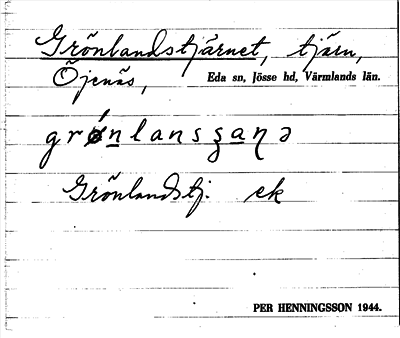 Grönlandstjärnet, tjärn,
Öjenäs, Eda sn, Jösse hd, Värmlands län.
grǿnlansʂaɳə
Grönlandstj. ek
PER HENNINGSSON 1944.